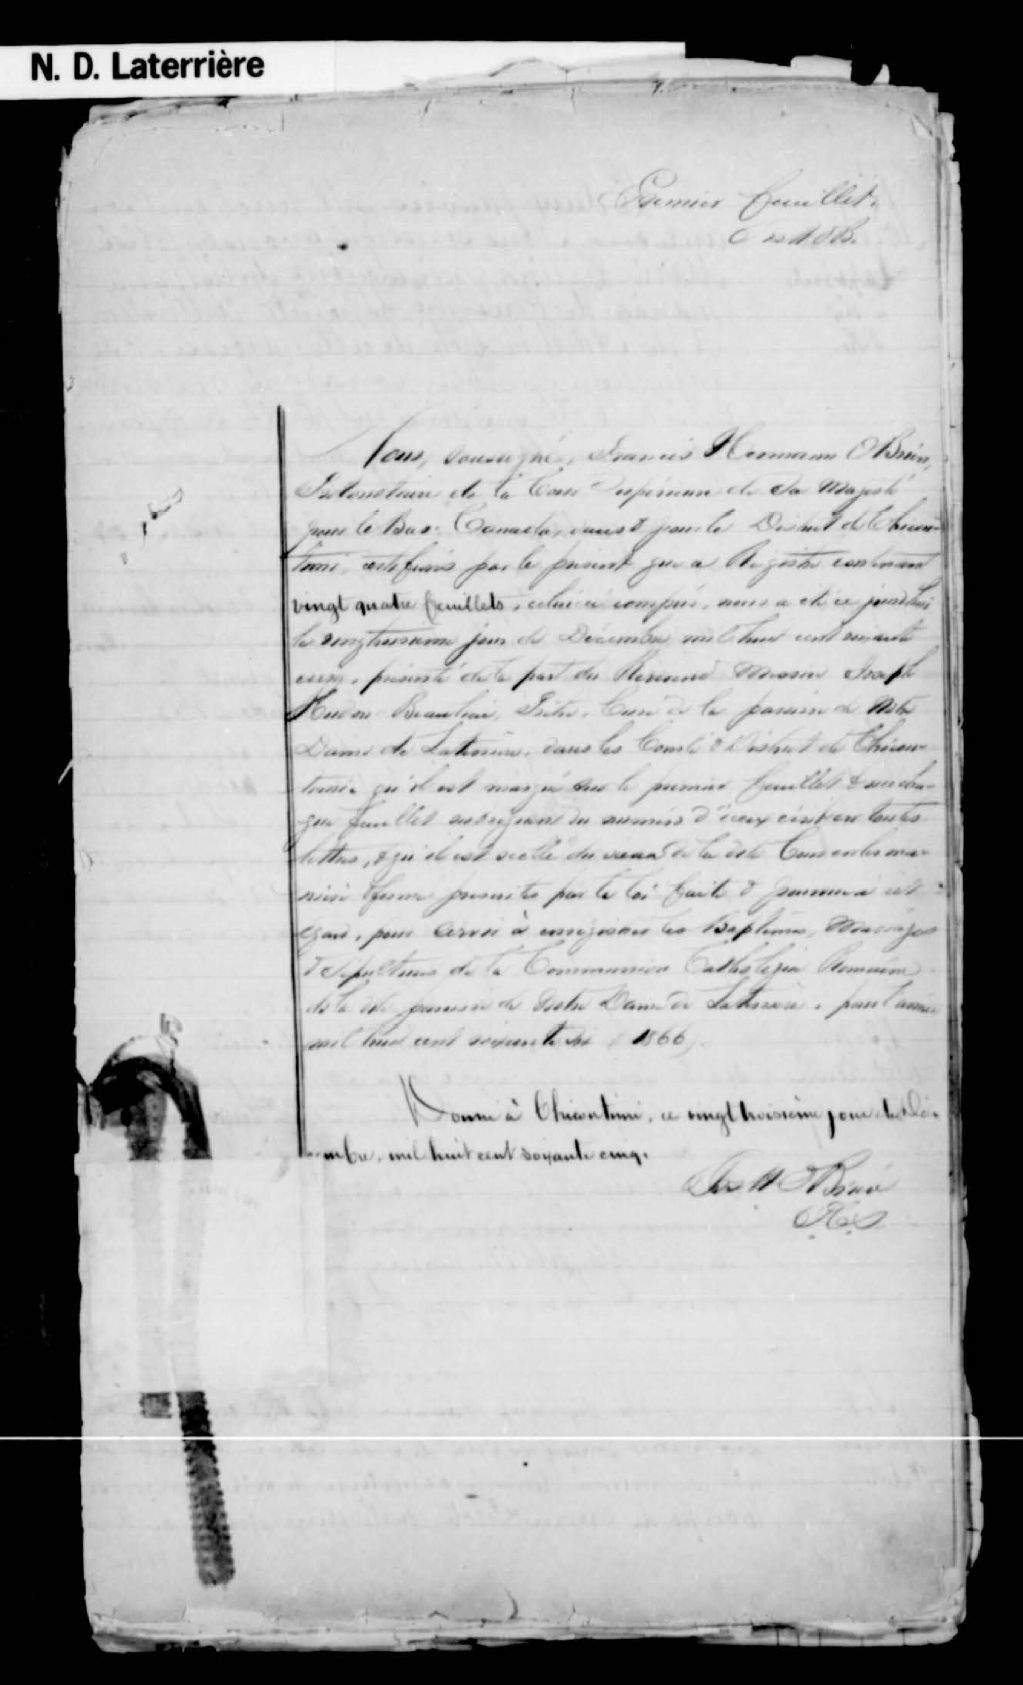 N. D. Laterrière
Premier feuillet.
Nous, soussigné, Francis Hermann OBrien,
Protonotaire de la Cour Supérieure de Sa Majesté
pour le Bas-Canada, dans & pour le District de Chicou-
timi, certifions par le présent que ce Registre contenant
vingt quatre feuillets, celui ci compris, nous a été ce jourd'hui
le vingtroisieme jour de Décembre mil huit cent soixante
cinq, présenté de la part du Révérend Messire Joseph
Beaulieu, Prêtre, Curé de la paroisse de Notre
Dame de Laterrière, dans les Comté & District de Chicou-
timi, qu'il est marqué sur le premier feuillet & sur cha-
que feuillet subséquent du numéro d'iceux écrit en toutes
lettres, & qu'il est scellé du sceau de la dite Cour en la ma-
nière & forme prescrites par la loi faite & pourvue à cet
égard, pour servir à enregistrer les Baptêmes, Mariages
& Sépultures de la Communion Catholique Romaine
de la dite paroisse de Notre Dame de Laterrière, pour l'année
mil huit cent soixante six (1866).
Donné à Chicoutimi, ce vingt troisième jour de Dé-
cembre, mil huit cent soixante cinq.
Frs H OBrien
P.C.S.